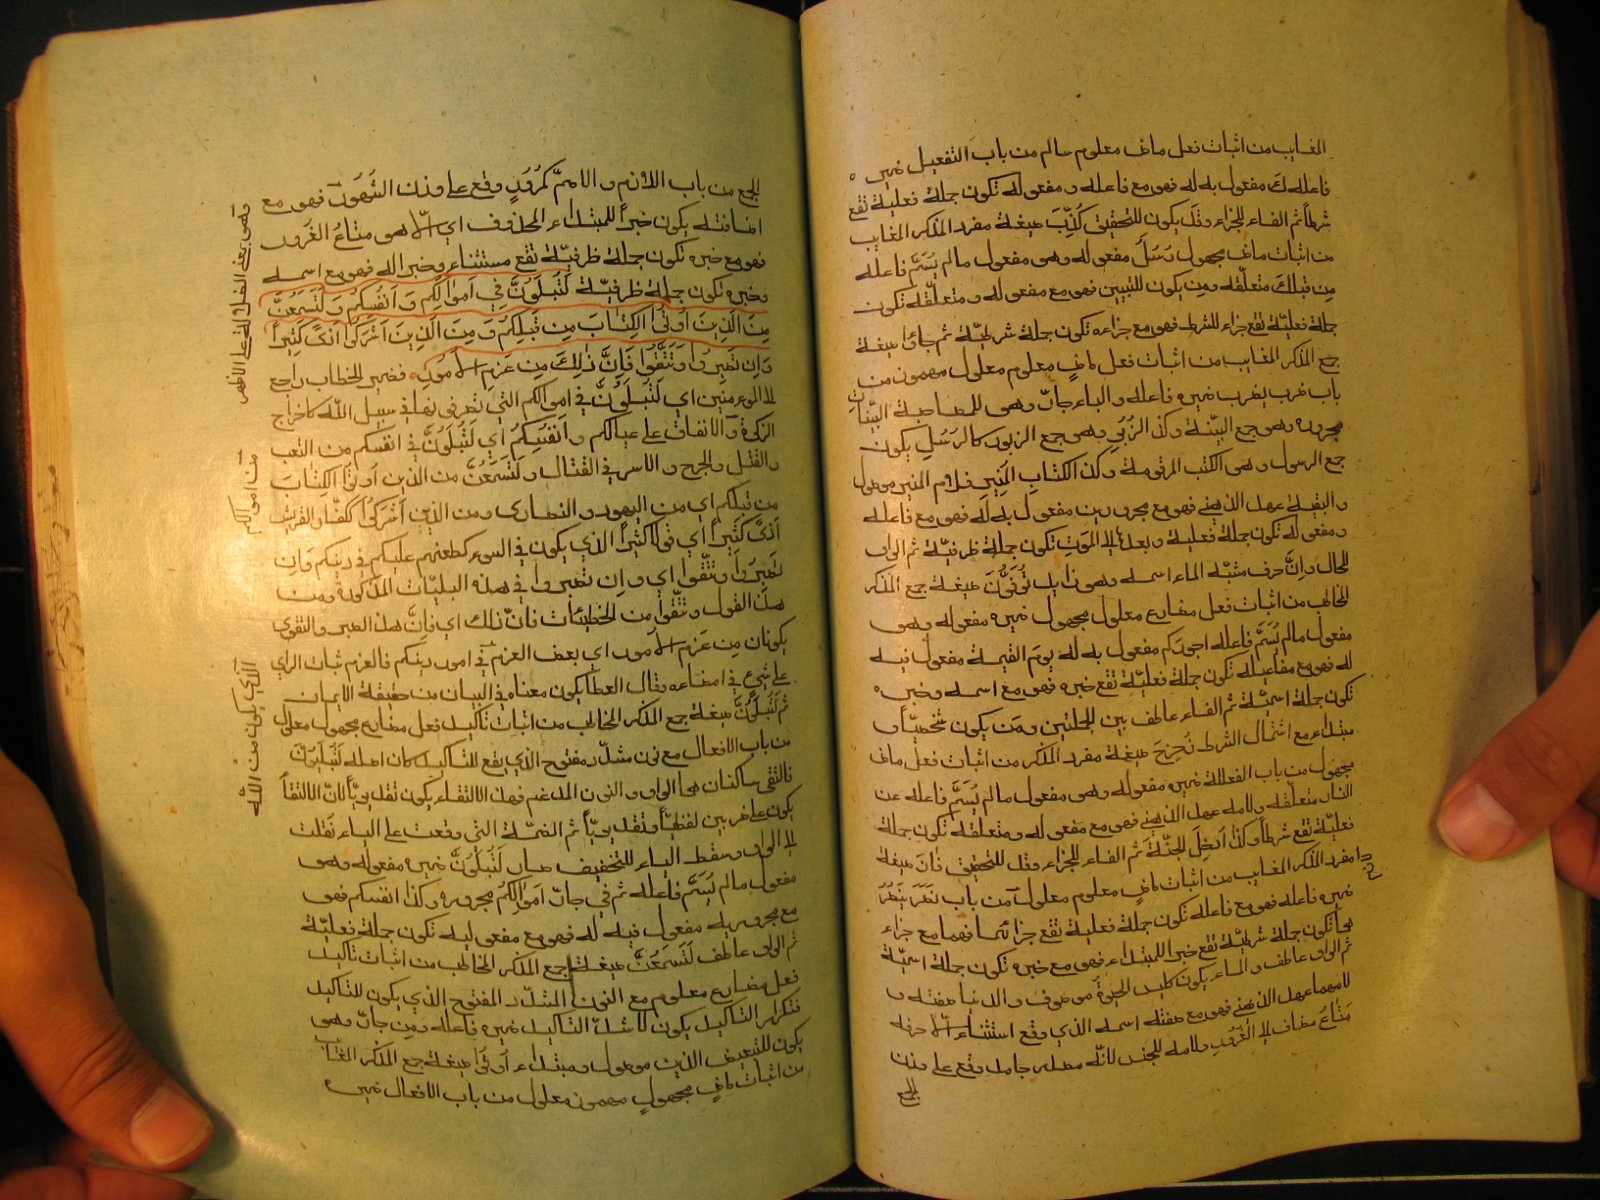 الغايب من اثبات فعل ماض معلوم سالم من باب التفعيل ضميره
فاعله ك مفعول به له فهو مع فاعله و مفعوله تكون جملة فعلية تقع
شرطاً ثم الفاء للجزاء وقد يكون للتحقيق كُذِّبَ صيغة مفرد المذكر الغايب
من اثبات ماض مجهول رُسُلٌ مفعوله وهو مفعول مالم يُسَمَّ فاعله
مِن قبلك متعلّقه ومِن يكون للتبيين فهو مع مفعوله و متعلّقه تكون
جملة فعليّة تقع جزاء للشرط فهو مع جزاءه تكون جملة شرطيّة ثم جاؤا صيغة
جمع المذكر الغايب من اثبات فعل ماضٍ معلوم معلول مهموز من
باب ضرب يضرب ضميره فاعله و الباء جارّ وهو للمصاحبة البيّنات
مجروره وهو جمع البيّنة وكذا الزُبُرِ وهو جمع الزبور كالرسُلِ يكون
جمع الرسول وهو الكتب المرقومة وكذا الكتابِ المُنِيرِ فلام المنير موصول
و البقيّة عهد الذهني فهو مع مجرورين مفعول به له فهو مع فاعله
و مفعوله تكون جملة فعلية و بعدها الموتِ تكون جملة ظرفيّة ثم الواو
للحال وانَّ حرف مشبّه الماء اسمه وهو زايد تُوَفَّوْنَ صيغة جمع المذكر
المخاطب من اثبات فعل مضارع معلول مجهول ضميره مفعوله وهو
مفعول مالم يُسَمَّ فاعله اجوركم مفعول به له يومَ القيمة مفعول فيه
له فهو مع مفاعيله تكون جملة فعليّة تقع خبره فهو مع اسمه وخبره
تكون جملة اسميّة ثم الفاء عاطف بين الجملتين ومَن يكون شخصيّاً و
مبتداء مع اشتمال الشرط زُحزِحَ صيغة مفرد المذكر من اثبات فعل ماض
مجهول من باب الفعللة ضميره مفعوله وهو مفعول مالم يُسَمَّ فاعله عن
النار متعلّقه و لامه عهد الذهني فهو مع مفعوله و متعلقه تكون جملة
فعليّة تقع شرطاً وكذا اُدخِلَ الجنّةَ ثم الفاء للجزاء وقد للتحقيق فازَ صيغة
مفرد المذكر الغايب من اثبات ماضٍ معلوم معلول من باب نَصَرَ يَنصُرُ
ضميره فاعله فهو مع فاعله تكون جملة فعلية تقع جزائهما فهما مع جزاء
هما تكون جملة شرطيّة تقع خبر المبتداء فهو مع خبره تكون جملة اسميّة
ثم الواو عاطف و الماء يكون كليد الحيوةُ موصوف و الدنيا صفته و
لامهما عهد الذهني فهو مع صفته اسمه الذي وقع استثناء الّا حرفه
مَتَاعُ مضاف الى الغُرُورِ ولامه للجنس لانّه مصدر جامد وقع على وزن
الجمع
الجمع من باب اللازم و الاصمّ كمُرُورٍ وقع على وزن الشهور فهو مع
اضافته يكون خبراً للمبتداء المحذوف اي الّا هو متاعُ الغرور
فهو مع خبره تكون جملة ظرفيّة تقع مستثناء وخبر اله فهو مع اسمه
وخبره تكون جملة ظرفيّة لَتُبلَوُنَّ في اَموالِكُم وَ اَنفُسِكُم وَ لَتَسمَعُنَّ
مِنَ الَّذِينَ اُوتُوا الكِتابَ مِن قَبلِكُم وَ مِنَ الَّذِينَ اَشرَكُوا اَذًى كَثِيراً
وَاِن تَصبِرُوا وَ تَتَّقُوا فَاِنَّ ذلِكَ مِن عَزمِ الاُمُورِ فضمير الخطاب راجع
الى المؤمنين اي لَتُبلَوُنَّ في اموالكم التي تصرفونها في سبيل اللّه كاخراج
الزكوة و الانفاق على عيالكم و اَنفُسِكُم اي لَتُبلَوُنَّ في انفسكم من التعب
و القتل و الجرح و الاسر في القتال و لَتَسمَعُنَّ من الذين اُوتوا الكِتابَ
من قبلكم اي من اليهود و النصارى و من الذين اَشركوا ككفّار القريش
اَذًى كَثِيراً اي قولا كثيراً الذي يكون في السوء كطعنهم عليكم في دينكم وَاِن
تَصبِرُوا وَ تَتَّقُوا اي و اِن تصبروا في هذه البليّات المذكورة و من
هذا القول و تتّقوا من الخطيئات فانّ ذلك اي فاِنّ هذا الصبر و التقوى
يكونان مِن عَزمِ الاُمُور اي بعض العزم في امور دينكم فالعزم ثبات الراي
على شيئ في امضاءه وقال العطا يكون معناه في البيان من حقيقة الايمان
ثم لَتُبلَوُنَّ صيغة جمع المذكر المخاطب من اثبات تاكيد فعل مضارع مجهول معلول
من باب الافعال مع نون مشدّد مفتوح الذي يقع للتاكيد كان اصله لَتُبلَيُونَّ
فالتقى ساكنان هما الواو و النون المدغم فهذا الالتقاء يكون تقديريّاً لانّ الالتقاء
يكون على ضربين لفظيّاً و تقديريّاً ثم الضمّة التي وقعت على الياء نقلت
الى الواو و سقط الياء للتخفيف صار لَتُبلَوُنَّ ضميره مفعوله وهو
مفعول مالم يُسَمَّ فاعله ثم في جارّ اَموالِكُم مجروره وكذا انفسكم فهو
مع مجروريه مفعول فيه له فهو مع مفعوليه تكون جملة فعليّة
ثم الواو عاطف لَتَسمَعُنَّ صيغة جمع المذكر المخاطب من اثبات تاكيد
فعل مضارع معلوم مع النون المشدّد المفتوح الذي يكون للتاكيد
فتكرار التاكيد يكون لاشدّ التاكيد ضميره فاعله ومِن جارّ وهو
يكون للتبعيض الذين موصول و مبتداء اُوتُوا صيغة جمع المذكر الغائب
من اثبات ماضٍ مجهولٍ مهموز معلول من باب الافعال ضميره
من اموالكم
الذي يكون من اللّه